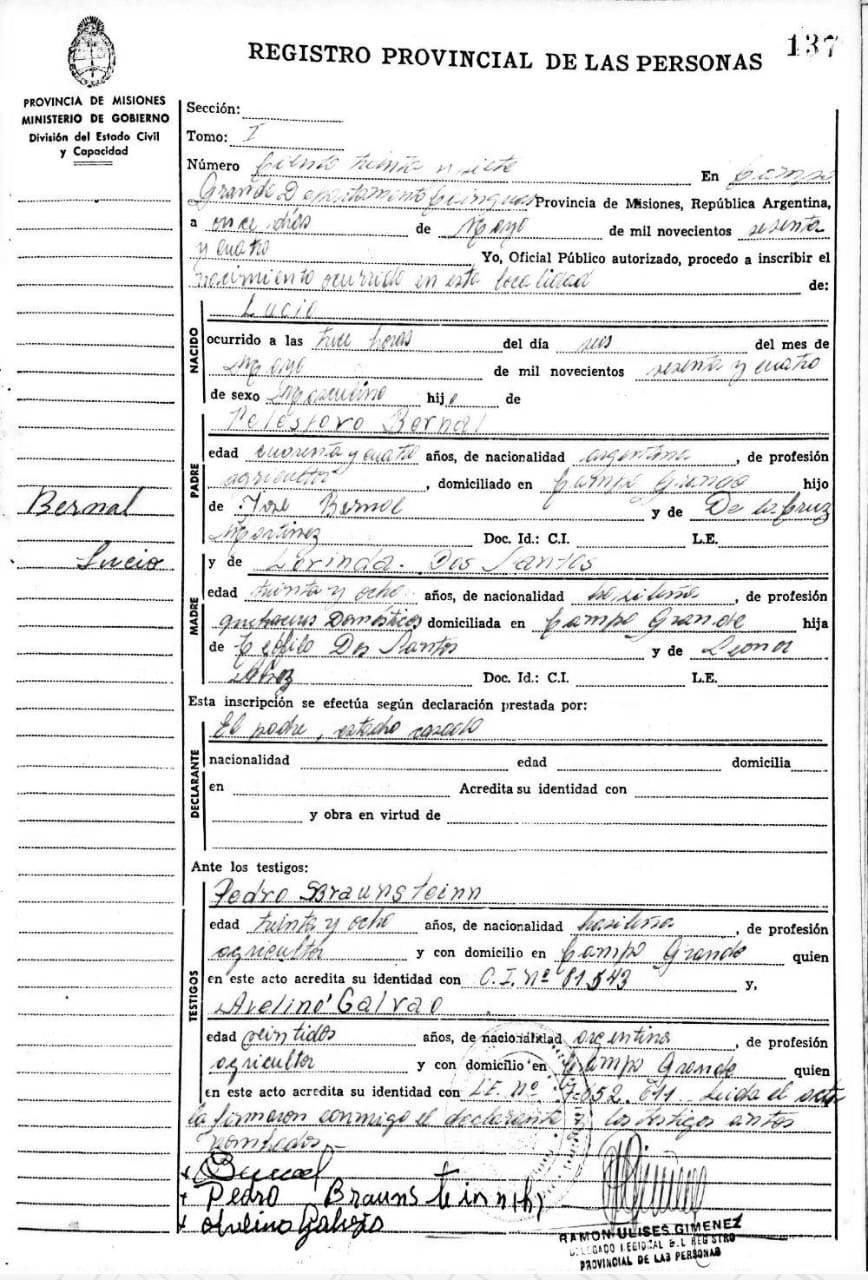 REGISTRO PROVINCIAL DE LAS PERSONAS
137
PROVINCIA DE MISIONES
MINISTERIO DE GOBIERNO
División del Estado Civil
y Capacidad
Sección:
Tomo: I
Número Ciento treinta y siete En Campo
Grande Departamento Cainguas Provincia de Misiones, República Argentina,
a once días de Mayo de mil novecientos sesenta
y cuatro Yo, Oficial Público autorizado, procedo a inscribir el
nacimiento ocurrido en esta localidad de:
NACIDO
Lucio
ocurrido a las trece horas del día seis del mes de
Mayo de mil novecientos sesenta y cuatro
de sexo Masculino hijo de
PADRE
Telesforo Bernal
edad cuarenta y cuatro años, de nacionalidad argentina, de profesión
agricultor, domiciliado en Campo Grande hijo
de José Bernal y de De la Cruz
Martinez Doc. Id.: C.I. L.E.
Bernal
Lucio
MADRE
y de Lorinda Dos Santos
edad treinta y ocho años, de nacionalidad brasileña, de profesión
quehaceres Domésticos domiciliada en Campo Grande hija
de Dos Santos y de Leonor
Doc. Id.: C.I. L.E.
Esta inscripción se efectúa según declaración prestada por:
DECLARANTE
El padre, estado casado
nacionalidad edad domicilia
en Acredita su identidad con
y obra en virtud de
Ante los testigos:
TESTIGOS
Pedro Braunsteinn
edad treinta y ocho años, de nacionalidad brasileña, de profesión
agricultor y con domicilio en Campo Grande quien
en este acto acredita su identidad con C.I. Nº 81.543 y,
Avelino Galvao
edad veintidos años, de nacionalidad argentina, de profesión
agricultor y con domicilio en Campo Grande quien
en este acto acredita su identidad con L.E. Nº 7.652.611 Leida el acta
la firmaron conmigo el declarante y los testigos antes
nombrados.-
Bernal
Pedro Braunsteinn (h)
RAMON ULISES GIMENEZ
DELEGADO REGIONAL DEL REGISTRO
PROVINCIAL DE LAS PERSONAS